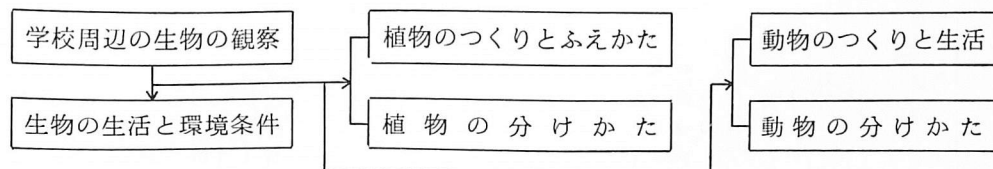 学校周辺の生物の観察
生物の生活と環境条件
植物のつくりとふえかた
植物の分けかた
動物のつくりと生活
動物の分けかた